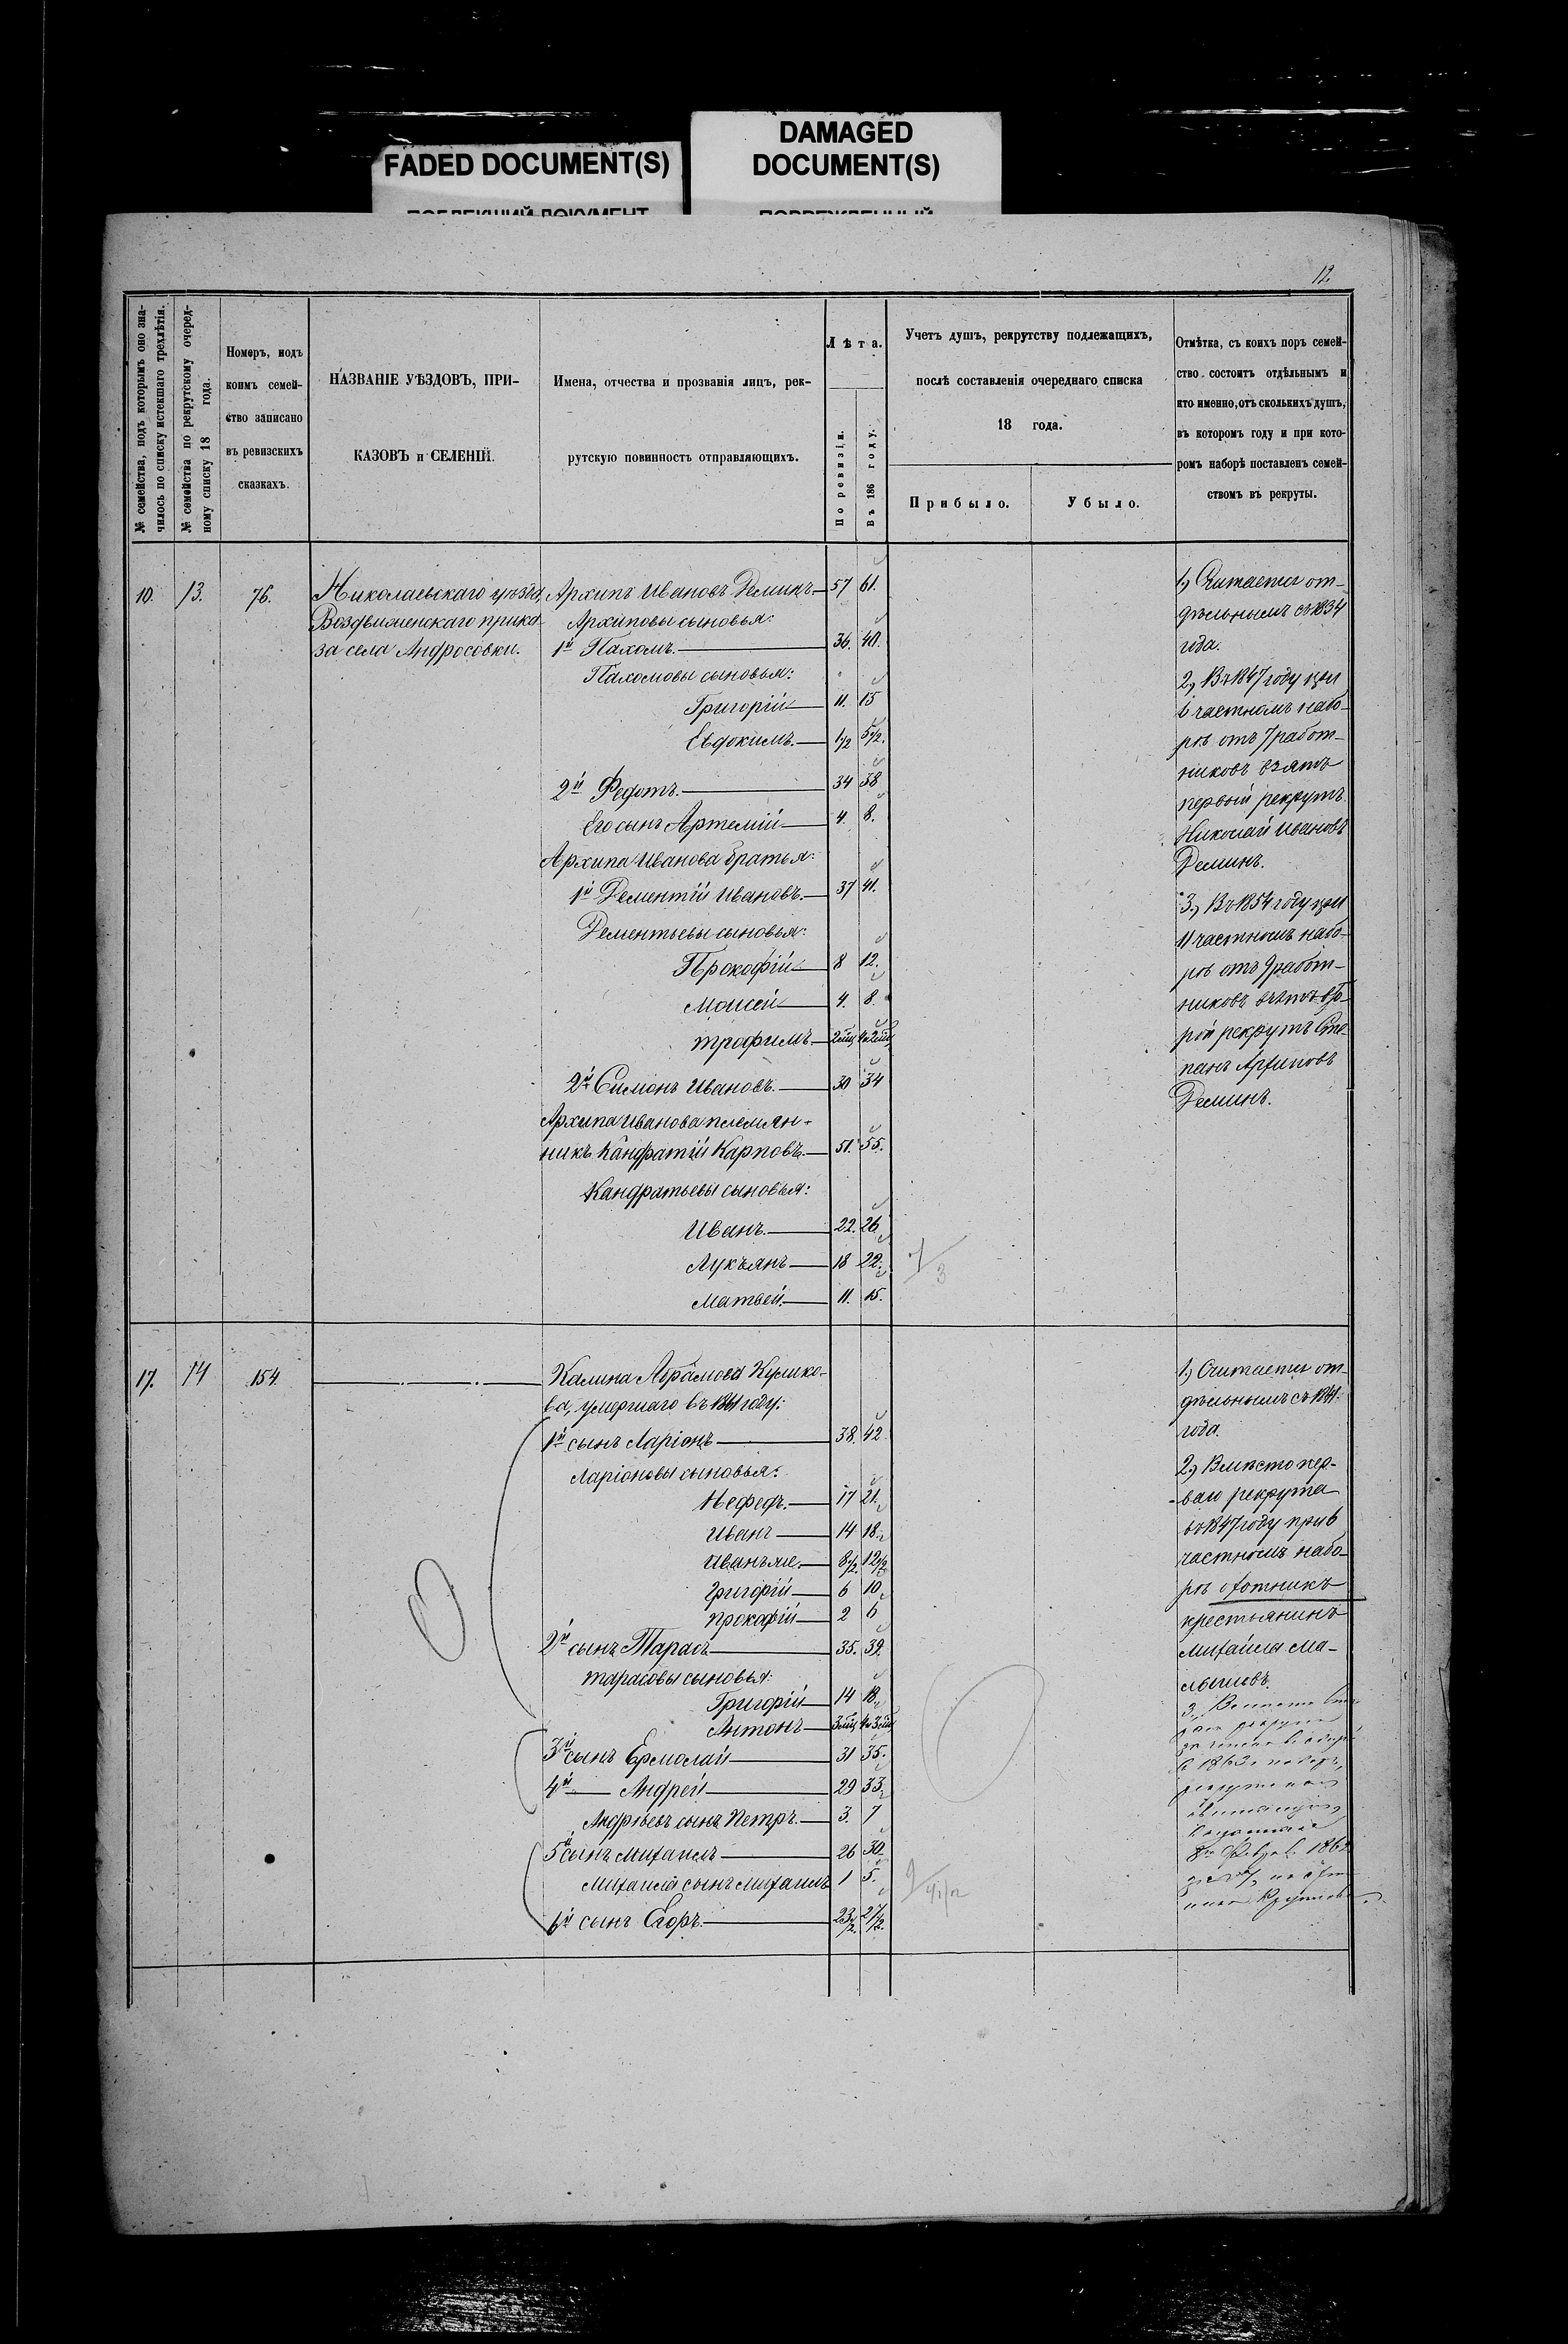 FADED DOCUMENT(S)
DAMAGED
DOCUMENT(S)
12
№ семейства, подъ которымъ оно зна-
чилось по списку истекшаго трехлѣтія.
№ семейства по рекрутскому очеред-
ному списку 18 года.
Номеръ, подъ
коимъ семей-
ство записано
въ ревизскихъ
сказкахъ.
НАЗВАНІЕ УѢЗДОВЪ, ПРИ-
КАЗОВЪ и СЕЛЕНІЙ.
Имена, отчества и прозванія лицъ, рек-
рутскую повинность отправляющихъ.
Лѣта.
По ревизіи.
Въ 186 году.
Учетъ душъ, рекрутству подлежащихъ,
послѣ составленія очереднаго списка
18 года.
Прибыло.
Убыло.
Отмѣтка, съ коихъ поръ семей-
ство состоитъ отдѣльнымъ и
кто именно, отъ сколькихъ душъ,
въ которомъ году и при кото-
ромъ наборѣ поставленъ семей-
ствомъ въ рекруты.
10. 13. 76.
Николаевскаго уѣзда,
Воздвиженскаго прика-
за села Андросовки.
Архипъ Ивановъ Деминъ 57 61.
Архиповы сыновья:
1й Пахомъ. 36. 40.
Пахомовы сыновья:
Григорій 11. 15
Евдокимъ. 1/2 5 1/2.
2й Федотъ. 34 38
Его сынъ Артемій 4. 8.
Архипа Иванова братья:
1й Дементій Ивановъ. 37 41.
Дементьевы сыновья:
Прокофій 8 12.
Моисей 4. 8.
Трофимъ. 2 мѣц 4 и 2 мѣц
2й Симонъ Ивановъ. 30 34
Архипа Иванова племян-
никъ Кандратій Карповъ. 51. 55.
Кандратьевы сыновья:
Иванъ. 22. 26.
Лукъянъ 18 22.
Матвей. 11. 15.
7/3
1) Считается от-
дѣльнымъ съ 1834
года.
2) Въ 1847 году при
6 частномъ набо-
рѣ отъ 7 работ-
никовъ взятъ
первый рекрутъ
Николай Ивановъ
Деминъ.
3) Въ 1854 году при
11 частномъ набо-
рѣ отъ 9 работ-
никовъ взятъ вто-
рой рекрутъ Сте-
панъ Архиповъ
Деминъ.
17. 14 154.
Калина Абрамова Кулико-
ва, умершаго въ 1861 году:
1й сынъ Ларіонъ 38. 42
Ларіоновы сыновья:
Нефедъ. 17 21.
Иванъ 14 18.
Иванъ же. 8 1/2. 12 1/2
Григорій 6 10.
Прокафій 2 6
2й сынъ Тарасъ 35. 39.
Тарасовы сыновья:
Григорій 14 18.
Антонъ 3 мѣц 4 и 3 мѣц
3й сынъ Ермолай 31 35.
4й — Андрей 29 33
Андреевъ сынъ Петръ. 3. 7
5й сынъ Михаилъ 26 30.
Михаила сынъ Михаилъ 1 5.
6й сынъ Егоръ. 23 1/2. 27 1/2.
1) Считается от-
дѣльнымъ съ 1841.
года.
2) Вмѣсто пер-
ваго рекрута
въ 1847 году при 6
частномъ набо-
рѣ охотникъ
крестьянинъ
Михайла Ма-
лышовъ.
3, Вмѣсто
1863
1862